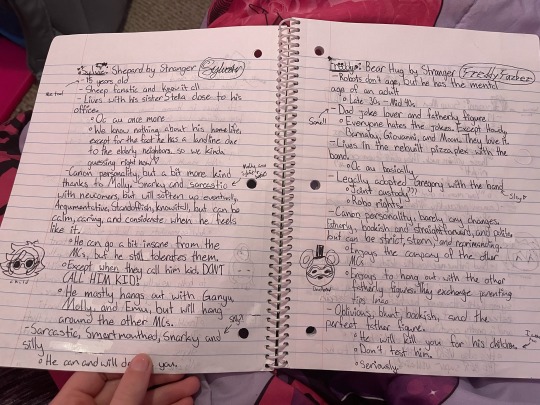 Sylvester: Shepard by Stranger Sylvester
-15 years old
-Sheep fanatic and know it all
-Lives with his sister Stella close to his
office.
Oc au once more
We know nothing about his homelife,
except for the fact he has a landline due
to the elderly neighbors, so we kinda
guessing right now
-Canon personality, but a bit more kind
thanks to Molly. Snarky and sarcastic
with newcomers, but will soften up eventually.
Argumentative, Standoffish, knowitall, but can be
calm, caring, and considerate when he feels
like it.
He can go a bit insane from the
MCs, but he still tolerates them.
Except when they call him kid. DON'T
CALL HIM KID!
He mostly hangs out with Ganyu,
Molly, and Emu, but will hang
around the other MCs.
-Sarcastic, Smartmouthed, Snarky and
silly
He can and will you.
Freddy: Bear Hug by Stranger Freddy Fazbear
-Robots don't age, but he has the mental
age of an adult
Late 30s - Mid 40s
-Dad joke lover and fatherly figure
Small
Everyone hates the jokes. Except Howdy,
Barnaby, Giovanni, and Moon. They love it.
-Lives in the rebuilt pizzaplex with the
band.
Oc au basically
-Legally adopted Gregory with the band
Joint custody??
Robo rights
-Canon personality, barely any changes.
Fatherly, bookish and straightforward, and polite,
but can be strict, stern, and reprimanding.
Enjoys the company of the other
MCs
Enjoys to hang out with the other
fatherly figures. They exchange parenting
tips
-Oblivious, blunt, bookish, and the
perfect father figure.
He will kill you for his children.
Don't test him.
Seriously.